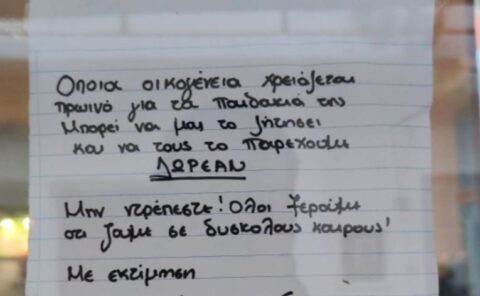 Οποια οικογένεια χρειάζεται
πρωινό για τα παιδακιά της
Μπορεί να μας το ζητησει
και να τους το παρέχουμε
ΔΩΡΕΑΝ
Μην ντρέπεστε! Ολοι ξερουμε
οτι ζαμε σε δυσκολους καιρους!
Με εκτιμηση